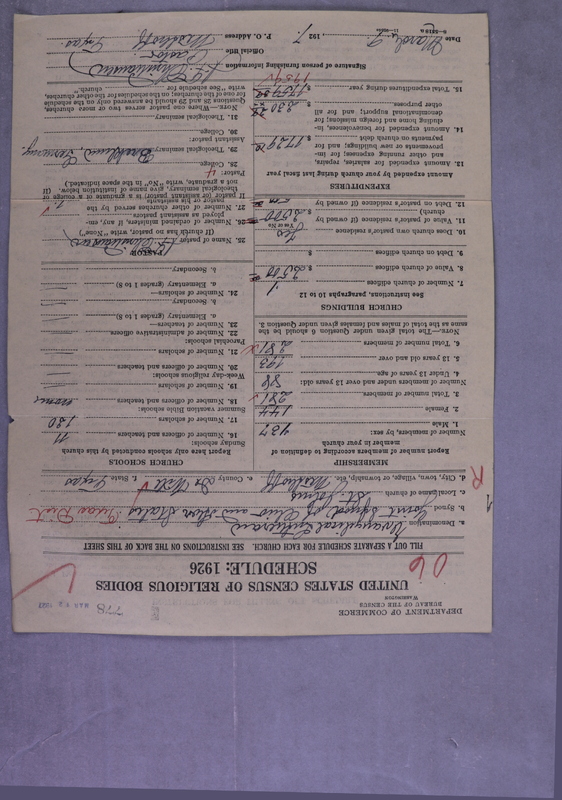 DEPARTMENT OF COMMERCE
BUREAU OF THE CENSUS
WASHINGTON
778
UNITED STATES CENSUS OF RELIGIOUS BODIES
SCHEDULE: 1926
FILL OUT A SEPARATE SCHEDULE FOR EACH CHURCH SEE INSTRUCTIONS ON THE BACK OF THIS SHEET
a. Denomination Evangelical Lutheran
b. Synod Joint Synod of Ohio and other States Texas Dist.
c. Local name of church St. Johns
d. City, town, village, or township, etc. e. County De Witt f. State Texas
MEMBERSHIP
Report number of members according to definition of
member in your church
Number of members, by sex:
1. Male 137
2. Female 144
3. Total number of members 281
Number of members under and over 13 years old:
4. Under 13 years of age 88
5. 13 years old and over 193
6. Total number of members 281
NOTE.—The total given under Question 6 should be the
same as the total of males and females given under Question 3.
CHURCH BUILDINGS
See instructions, paragraphs 10 to 12
7. Number of church edifices 1
8. Value of church edifices $
9. Debt on church edifices $
10. Does church own pastor's residence Yes
Yes or No
11. Value of pastor's residence (if owned by
church) $
12. Debt on pastor's residence (if owned by
EXPENDITURES
Amount expended by your church during last fiscal year
13. Amount expended for salaries, repairs,
and other running expenses; for im-
provements or new building; and for
payments on church debt
14. Amount expended for benevolences, in-
cluding home and foreign missions; for
denominational support; and for all
other purposes
15. Total expenditures during year $
CHURCH SCHOOLS
Report here only schools conducted by this church
Sunday schools:
16. Number of officers and teachers 11
17. Number of scholars 130
Summer vacation Bible schools:
18. Number of officers and teachers none
19. Number of scholars
Week-day religious schools:
20. Number of officers and teachers
21. Number of scholars
Parochial schools:
22. Number of administrative officers
23. Number of teachers—
a. Elementary (grades 1 to 8)
b. Secondary
24. Number of scholars—
a. Elementary (grades 1 to 8)
b. Secondary
PASTOR
25. Name of pastor
(If church has no pastor, write "None")
26. Number of ordained ministers, if any, em-
ployed as assistant pastors
27. Number of other churches served by the
pastor or his assistants
If pastor (or assistant pastor) is a graduate of a college or
theological seminary, give name of institution below. (If
not a graduate, write "No" in the space indicated.)
Pastor:
28. College
29. Theological seminary Breklum, Germany
Assistant pastor:
30. College
31. Theological seminary
NOTE.—Where one pastor serves two or more churches,
Questions 25 and 29 should be answered only on the schedule
for one of the churches; on the schedules for the other churches,
write "See schedule for church."
Signature of person furnishing information
Official title Pastor
Date March 9, 1927 P. O. Address Texas